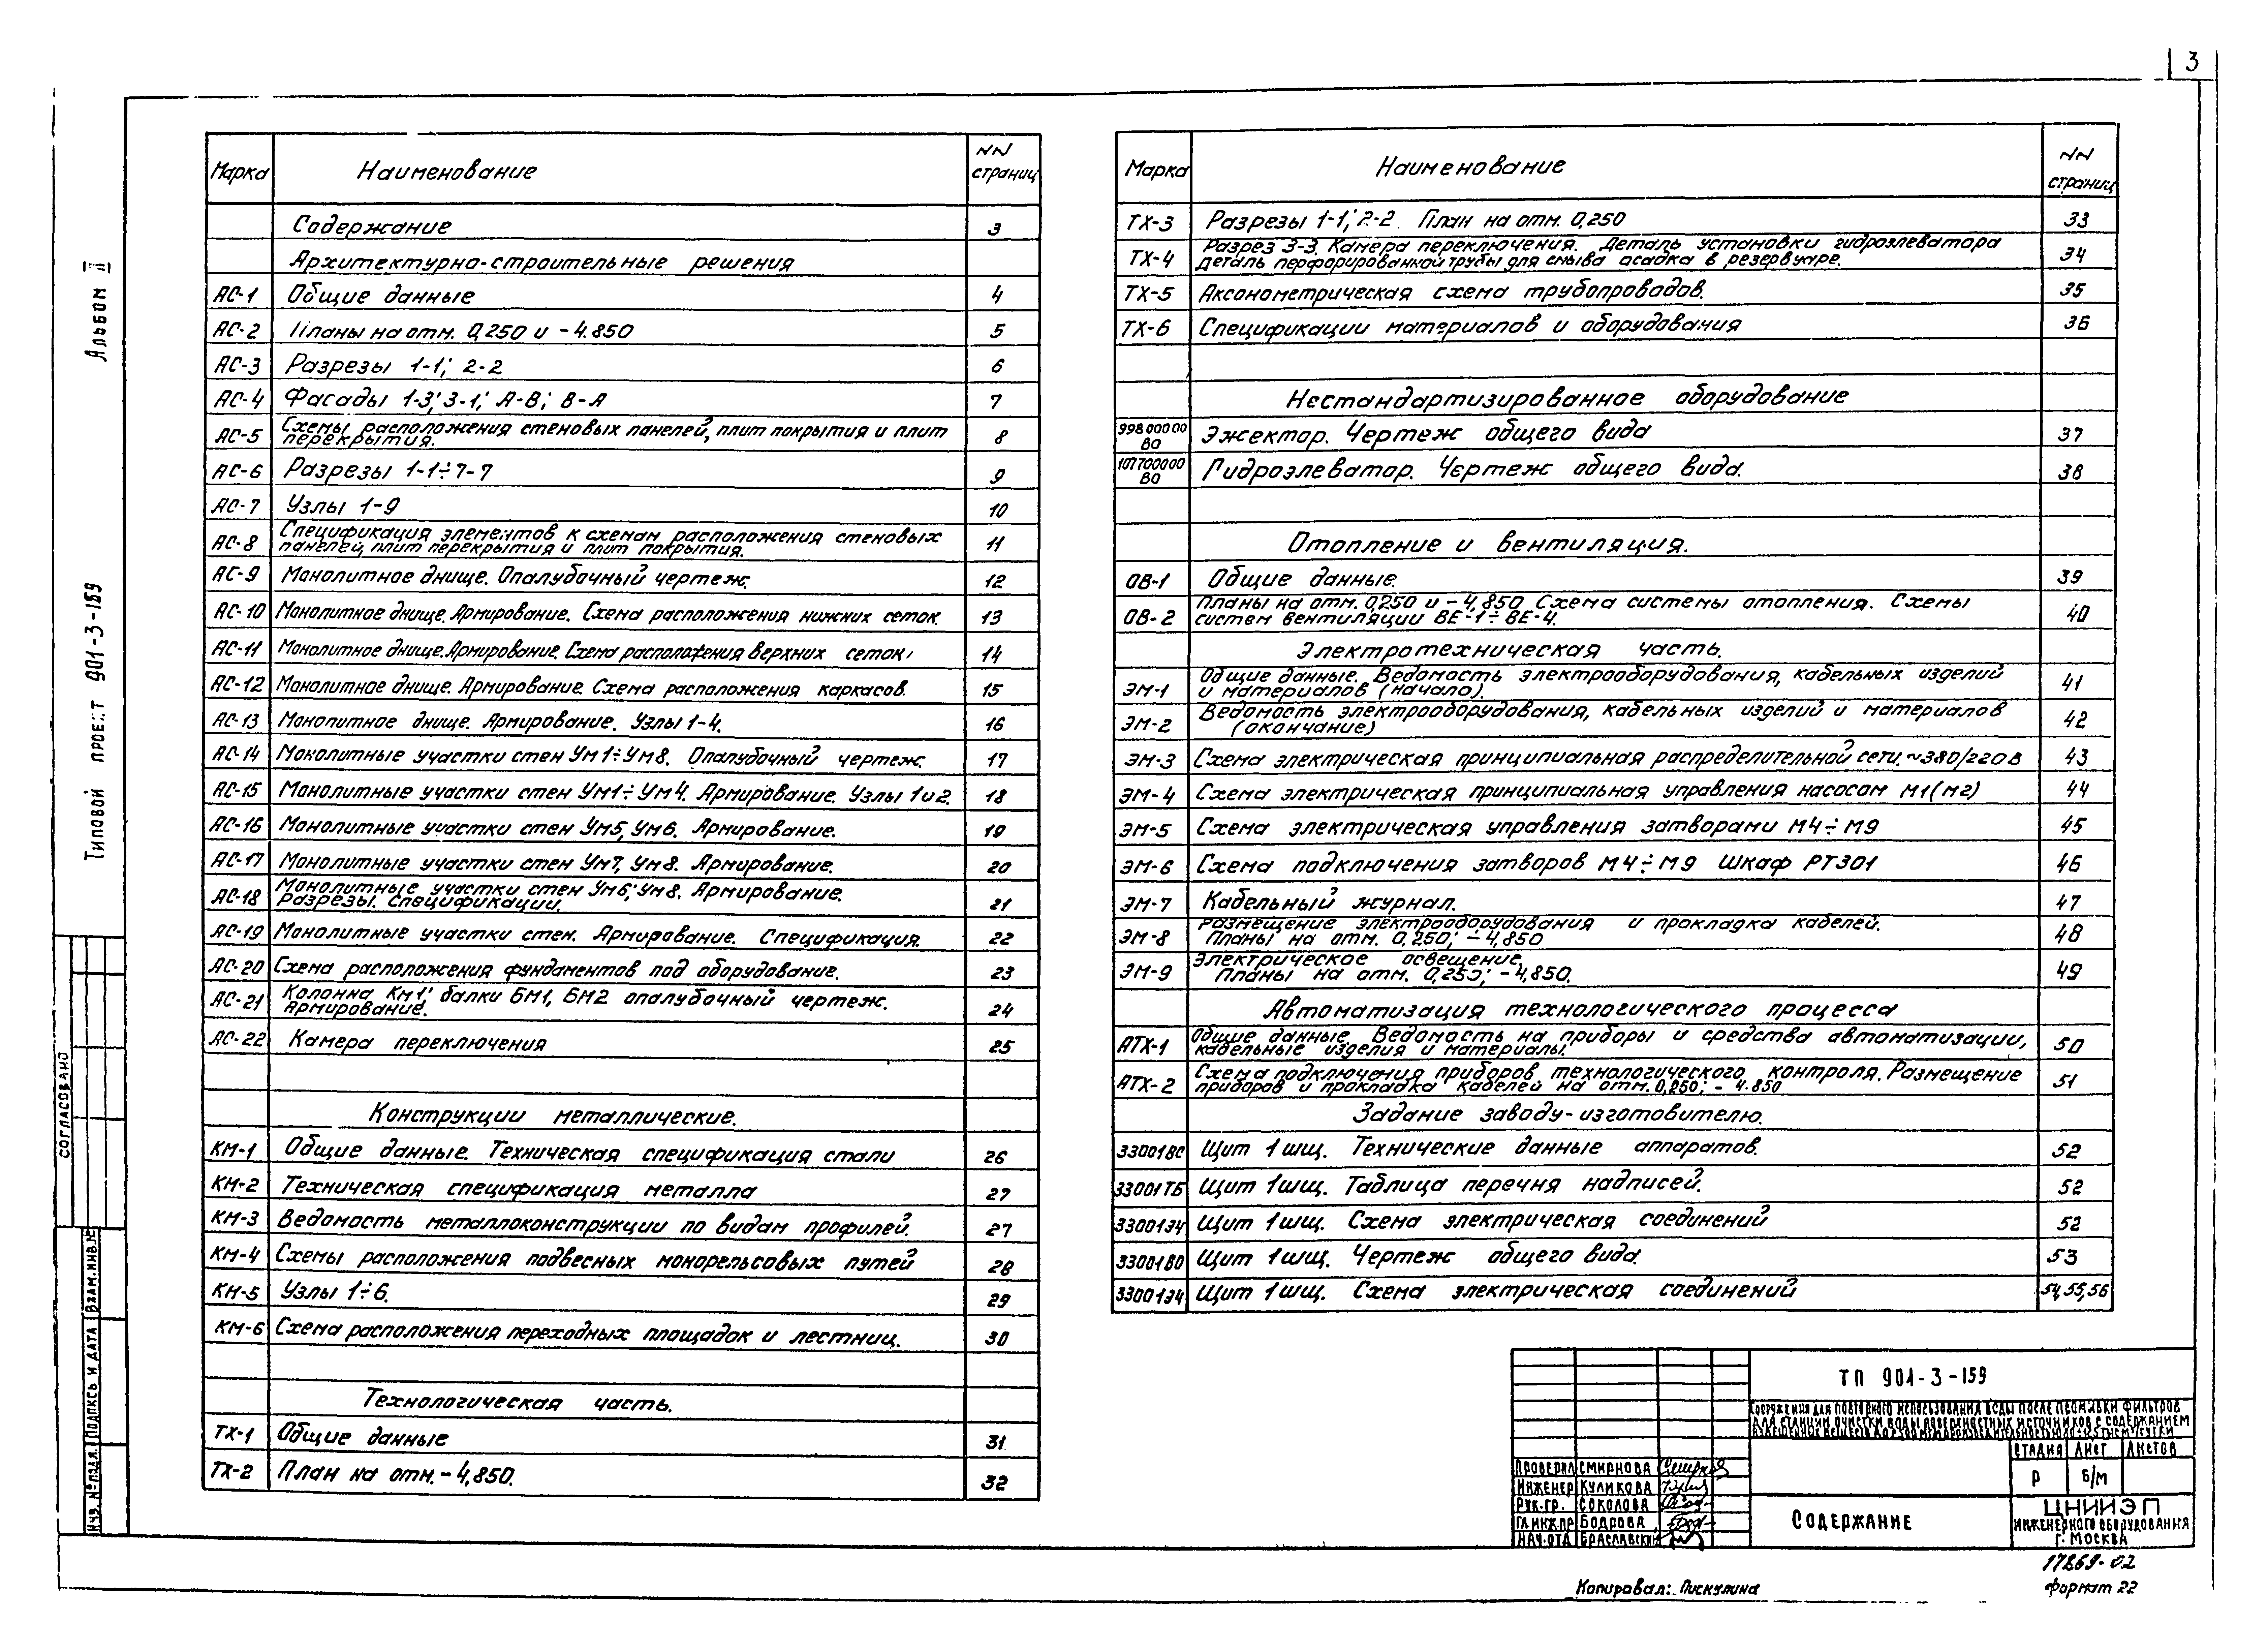 3
Альбом II
Типовой проект 901-3-159
СОГЛАСОВАНО
ВЗАМ. ИНВ.№
ПОДПИСЬ И ДАТА
ИНВ. № ПОДЛ.
Марка Наименование NN страниц
Содержание 3
Архитектурно-строительные решения
АС-1 Общие данные 4
АС-2 Планы на отм. 0,250 и -4.850 5
АС-3 Разрезы 1-1; 2-2 6
АС-4 Фасады 1-3; 3-1; А-В; В-А 7
АС-5 Схемы расположения стеновых панелей, плит покрытия и плит
перекрытия. 8
АС-6 Разрезы 1-1÷7-7 9
АС-7 Узлы 1-9 10
АС-8 Спецификация элементов к схемам расположения стеновых
панелей, плит перекрытия и плит покрытия. 11
АС-9 Монолитное днище. Опалубочный чертеж. 12
АС-10 Монолитное днище. Армирование. Схема расположения нижних сеток. 13
АС-11 Монолитное днище. Армирование. Схема расположения верхних сеток. 14
АС-12 Монолитное днище. Армирование. Схема расположения каркасов. 15
АС-13 Монолитное днище. Армирование. Узлы 1-4. 16
АС-14 Монолитные участки стен Ум1÷Ум8. Опалубочный чертеж. 17
АС-15 Монолитные участки стен Ум1÷Ум4. Армирование. Узлы 1и2. 18
АС-16 Монолитные участки стен Ум5, Ум6. Армирование. 19
АС-17 Монолитные участки стен Ум7, Ум8. Армирование. 20
АС-18 Монолитные участки стен Ум6; Ум8. Армирование.
Разрезы. Спецификации. 21
АС-19 Монолитные участки стен. Армирование. Спецификация. 22
АС-20 Схема расположения фундаментов под оборудование. 23
АС-21 Колонна Км1; балки БМ1, БМ2 опалубочный чертеж.
Армирование. 24
АС-22 Камера переключения 25
Конструкции металлические.
КМ-1 Общие данные. Техническая спецификация стали 26
КМ-2 Техническая спецификация металла 27
КМ-3 Ведомость металлоконструкции по видам профилей. 27
КМ-4 Схемы расположения подвесных монорельсовых путей 28
КМ-5 Узлы 1÷6. 29
КМ-6 Схема расположения переходных площадок и лестниц. 30
Технологическая часть.
ТХ-1 Общие данные 31
ТХ-2 План на отм. -4,850. 32
Марка Наименование NN страниц
ТХ-3 Разрезы 1-1; 2-2. План на отм. 0,250 33
ТХ-4 Разрез 3-3. Камера переключения. Деталь установки гидроэлеватора
Деталь перфорированной трубы для смыва осадка в резервуаре. 34
ТХ-5 Аксонометрическая схема трубопроводов. 35
ТХ-6 Спецификации материалов и оборудования 36
Нестандартизированное оборудование
9980000 ВО Эжектор. Чертеж общего вида 37
107700000 ВО Гидроэлеватор. Чертеж общего вида. 38
Отопление и вентиляция.
ОВ-1 Общие данные. 39
ОВ-2 Планы на отм. 0,250 и -4,850 Схема системы отопления. Схемы
систем вентиляции ВЕ-1÷ВЕ-4. 40
Электротехническая часть.
ЭМ-1 Общие данные. Ведомость электрооборудования, кабельных изделий
и материалов (начало). 41
ЭМ-2 Ведомость электрооборудования, кабельных изделий и материалов
(окончание) 42
ЭМ-3 Схема электрическая принципиальная распределительной сети ~380/220в 43
ЭМ-4 Схема электрическая принципиальная управления насосом М1(М2) 44
ЭМ-5 Схема электрическая управления затворами М4÷М9 45
ЭМ-6 Схема подключения затворов М4÷М9 шкаф РТ301 46
ЭМ-7 Кабельный журнал. 47
ЭМ-8 Размещение электрооборудования и прокладка кабелей.
Планы на отм. 0,250; -4,850 48
ЭМ-9 Электрическое освещение.
Планы на отм. 0,250; -4,850. 49
Автоматизация технологического процесса
АТХ-1 Общие данные. Ведомость на приборы и средства автоматизации,
кабельные изделия и материалы. 50
АТХ-2 Схема подключения приборов технологического контроля. Размещение
приборов и прокладка кабелей на отм. 0,250; -4.850 51
Задание заводу-изготовителю.
Щит 1щщ. Технические данные аппаратов. 52
33001ТБ Щит 1щщ. Таблица перечня надписей. 52
33001Э4 Щит 1щщ. Схема электрическая соединений 52
33001ВО Щит 1щщ. Чертеж общего вида. 53
33001Э4 Щит 1щщ. Схема электрическая соединений 54,55,56
ТП 901-3-159
Сооружения для повторного использования воды после промывки фильтров
для станции очистки воды поверхностных источников с содержанием
взвешенных веществ до 2500 мг/л производительностью
СТАДИЯ ЛИСТ ЛИСТОВ
Р Б/М
ПРОВЕРИЛ СМИРНОВА
ИНЖЕНЕР КУЛИКОВА
РУК.ГР. СОКОЛОВА
ГЛ.ИНЖ.ПР БОДРОВА
НАЧ.ОТД БРАСЛАВСКИЙ
СОДЕРЖАНИЕ
ЦНИИЭП
ИНЖЕНЕРНОГО ОБОРУДОВАНИЯ
Г. МОСКВА
17869-02
Копировал: Пискулина
Формат 22